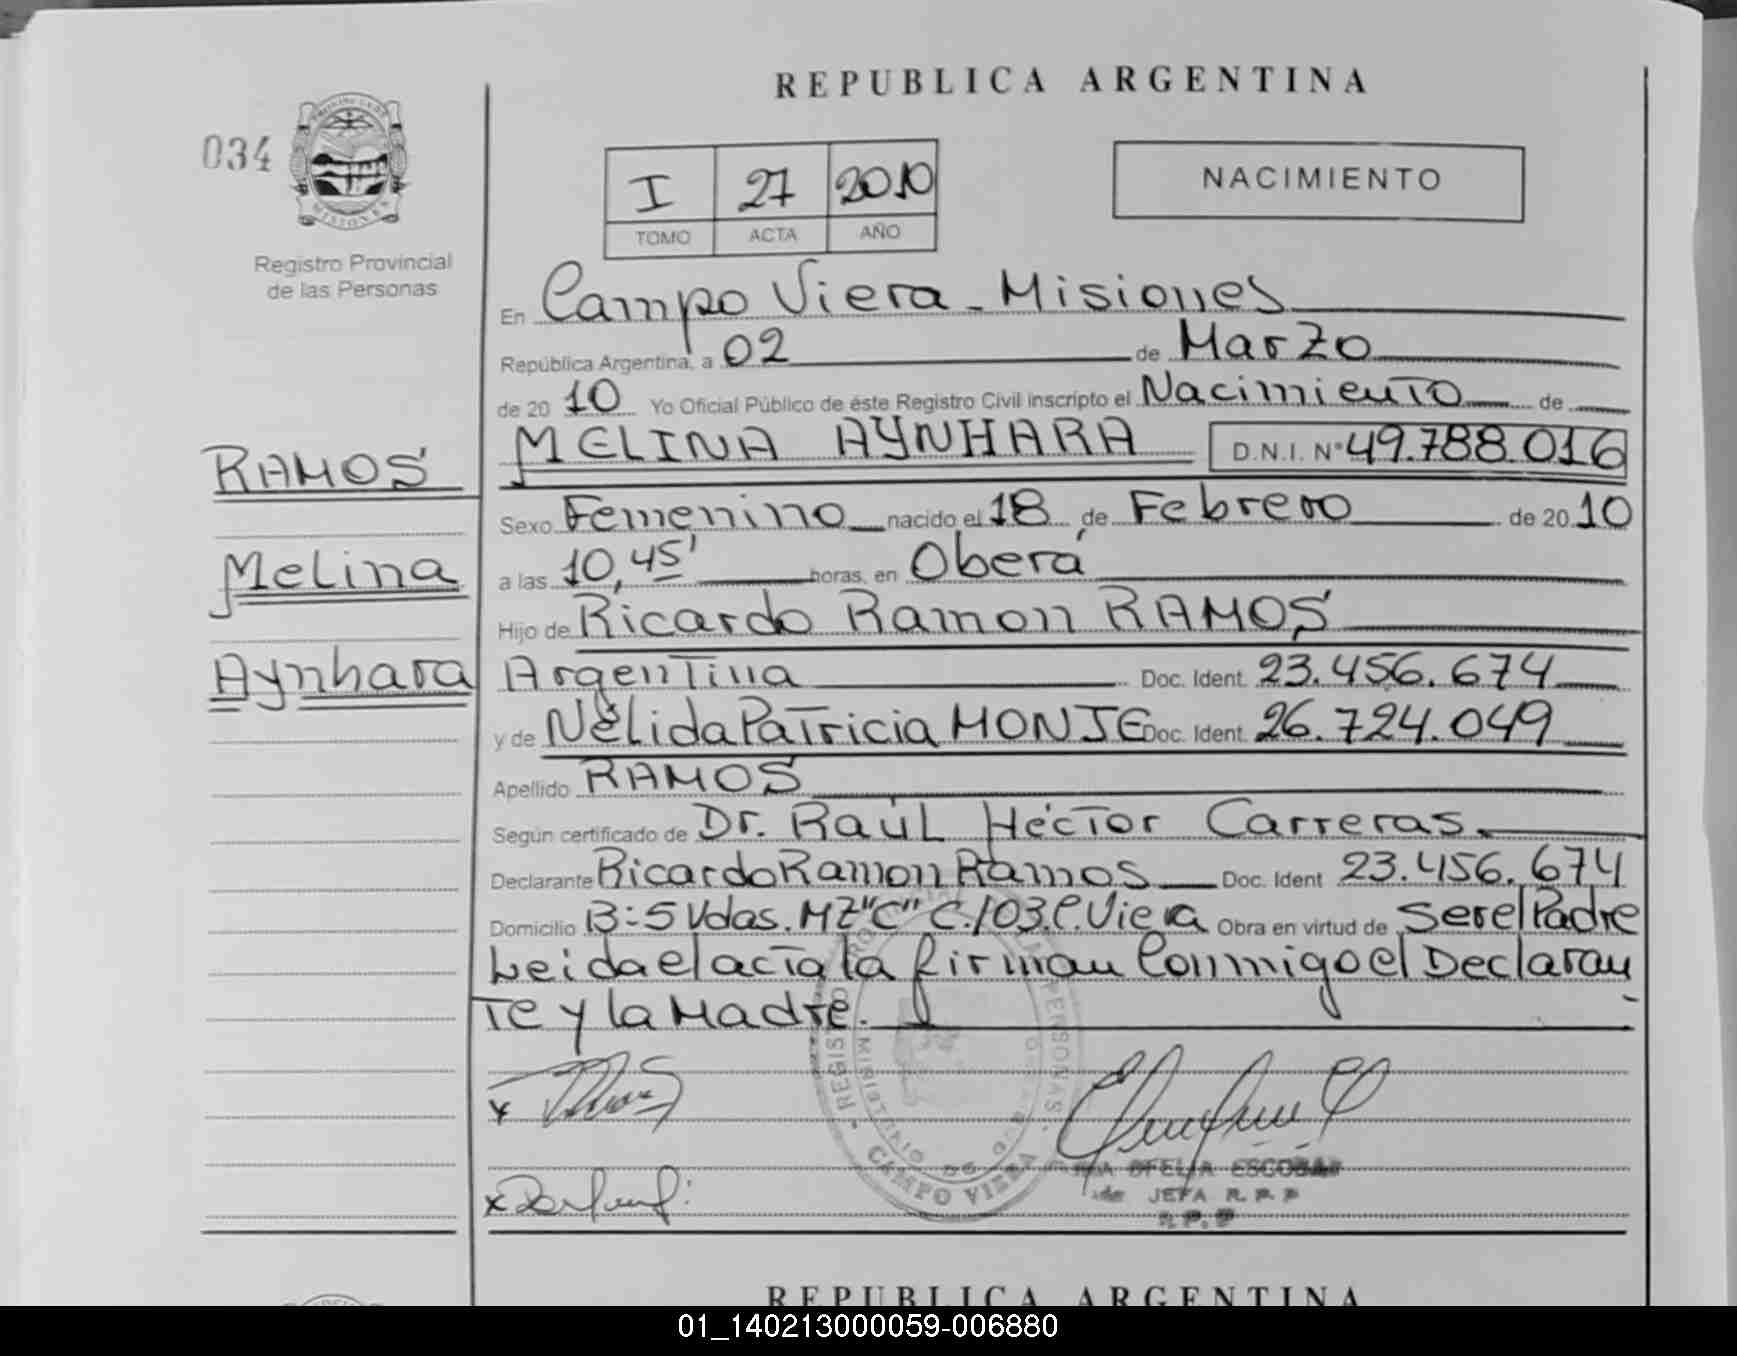 REPUBLICA ARGENTINA
034
I 27 2010
TOMO ACTA AÑO
NACIMIENTO
MISIONES
Registro Provincial
de las Personas
En Campo Viera - Misiones
República Argentina, a 02 de Marzo
de 20 10 Yo Oficial Público de éste Registro Civil inscripto el Nacimiento de
RAMOS
MELINA AYNHARA D.N.I. N° 49.788.016
Sexo Femenino nacido el 18 de Febrero de 20 10
Melina
a las 10,45' horas, en Oberá
Hijo de Ricardo Ramon RAMOS
Aynhara
Argentina Doc. Ident. 23.456.674
y de Nélida Patricia MONJE Doc. Ident. 26.724.049
Apellido RAMOS
Según certificado de Dr. Raúl Héctor Carreras.
Declarante Ricardo Ramon Ramos Doc. Ident 23.456.674
Domicilio B:5 Vdas. MZ"C" C./03.C.Viera Obra en virtud de Ser el Padre
Leida el acta la firman Conmigo el Declaran
te y la Madre.
CAMPO VIERA
OFELIA ESCOBAR
JEFA R.P.P
REPUBLICA ARGENTINA
01_140213000059-006880